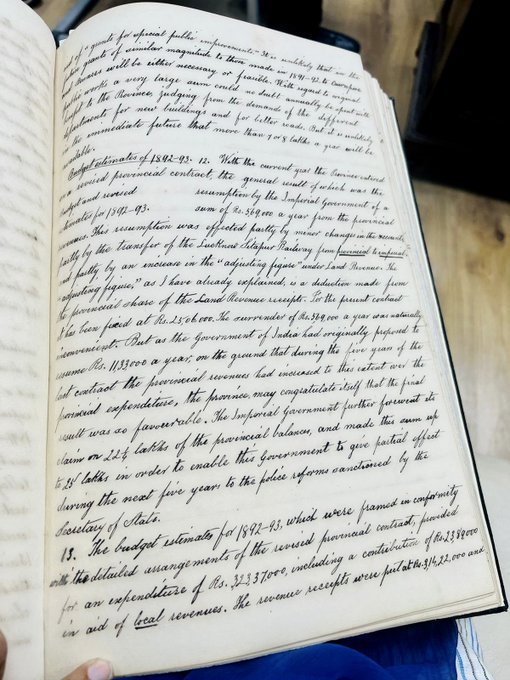 of "grants for special public improvements". It is unlikely that in the
grants of similar magnitude to those made in 1891-92 to Cawnpore
and Benares will be either necessary or feasible. With regard to original
public works a very large sum could no doubt annually be spent with
to the Province, judging from the demands of the different
departments for new buildings and for better roads. But it is unlikely
in the immediate future that more than 7 or 8 lakhs a year will be
available.
Budget estimates of 1892-93. 12. With the current year the Province entered
on a revised provincial contract, the general result of which was the
Budget and revised resumption by the Imperial Government of a
estimates for 1892-93. sum of Rs. 569,000 a year from the provincial
revenues. This resumption was effected partly by minor changes in the accounts,
partly by the transfer of the Lucknow Sitapur Railway from provincial to imperial,
and partly by an increase in the "adjusting figure" under Land Revenue. The
"adjusting figure," as I have already explained, is a deduction made from
the provincial share of the Land Revenue receipts. For the present contract
it has been fixed at Rs. 25,06,000. The surrender of Rs. 569,000 a year was naturally
inconvenient. But as the Government of India had originally proposed to
resume Rs. 1133000 a year, on the ground that during the five years of the
last contract the provincial revenues had increased to this extent over the
provincial expenditure, the province may congratulate itself that the final
result was so favourable. The Imperial Government further forewent its
claim on 22¼ lakhs of the provincial balances, and made this sum up
to 24 lakhs in order to enable this Government to give partial effect
during the next five years to the police reforms sanctioned by the
Secretary of State.
13. The budget estimates for 1892-93, which were framed in conformity
with the detailed arrangements of the revised provincial contract, provided
for an expenditure of Rs. 32337,000, including a contribution of Rs. 2389000
in aid of local revenues. The revenue receipts were put at Rs. 3,14,22,000 and